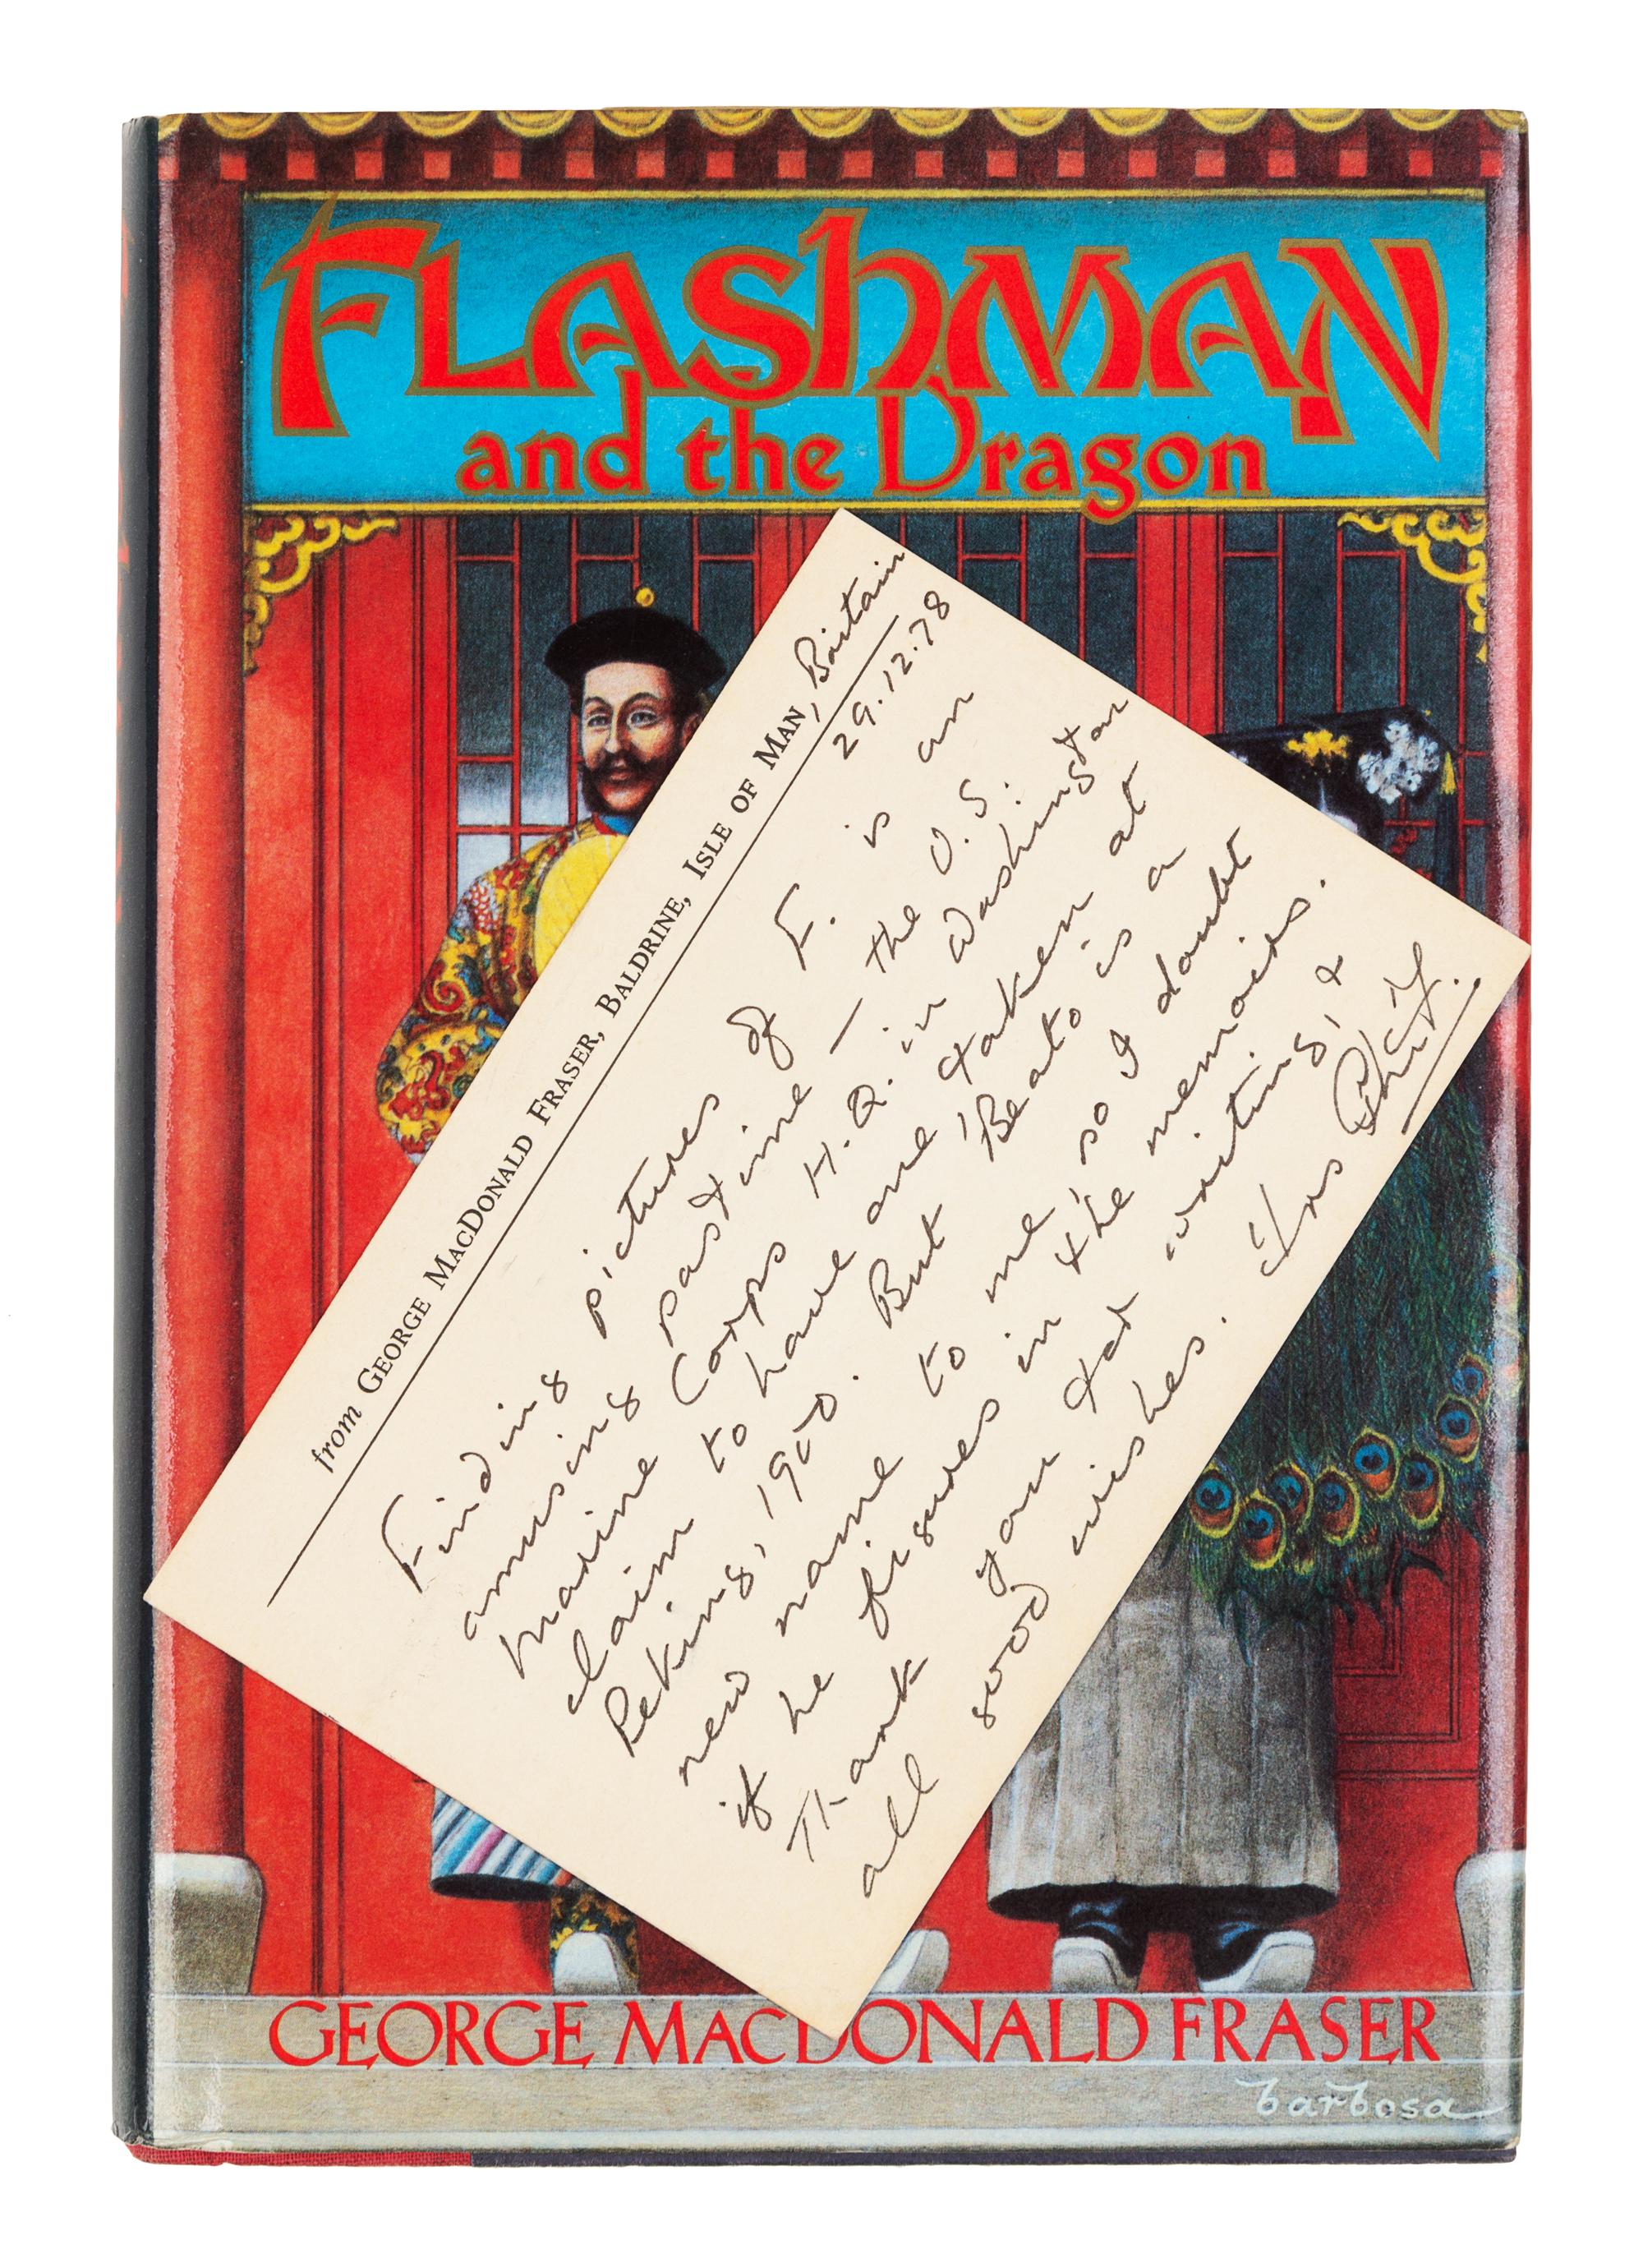 FLASHMAN
and the Dragon
from GEORGE MACDONALD FRASER, BALDRINE, ISLE OF MAN, Britain
29.12.78
Finding pictures of F. is an
amusing pastime — the U.S.
Marine Corps H.Q. in Washington
claim to have one taken at
Peking, 1900. But 'Beato is a
new name to me,' so I doubt
if he figures in the memoirs.
Thank you for writing, &
all good wishes. Yrs
GEORGE MACDONALD FRASER
barbosa